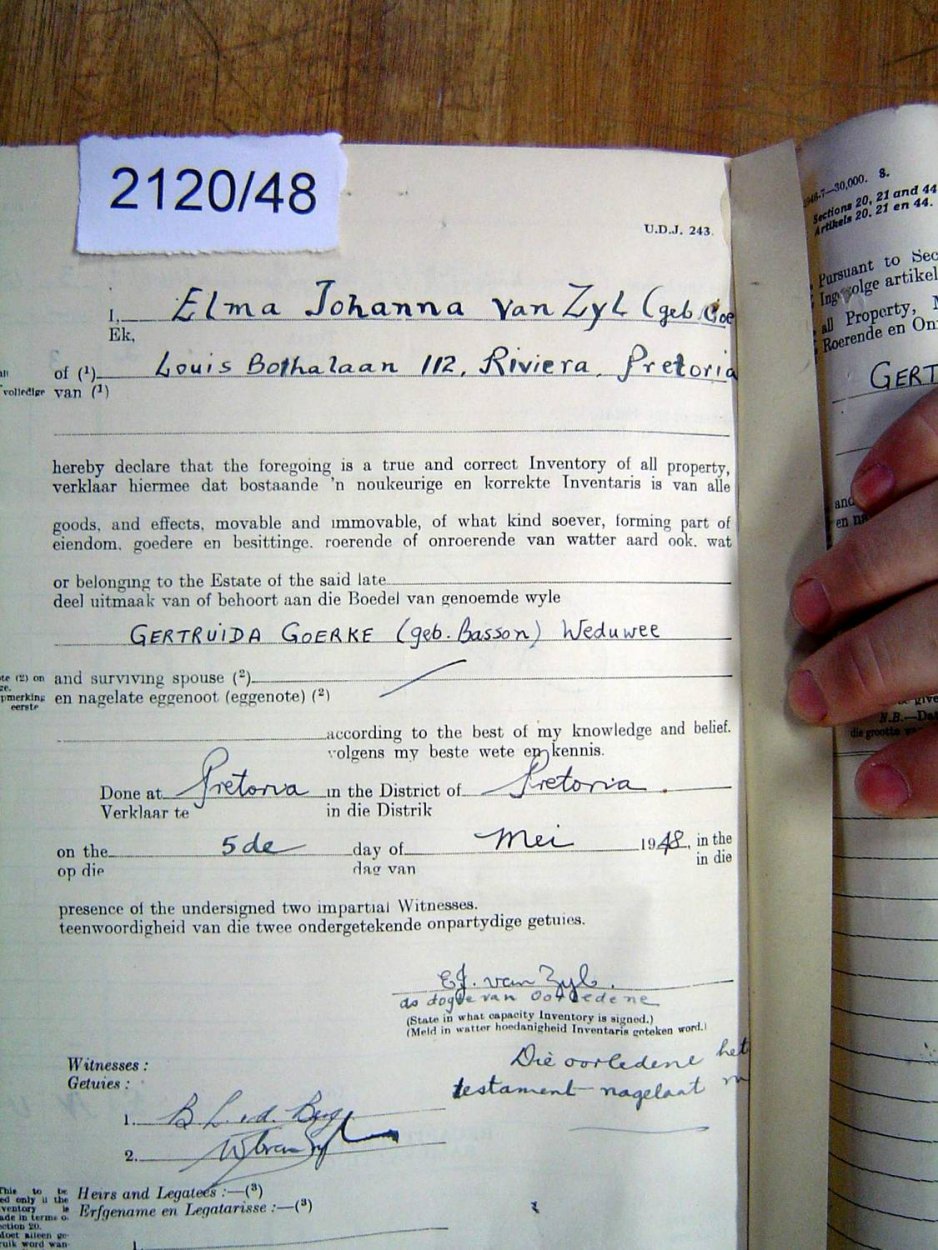 2120/48
U.D.J. 243.
1948-7—30,000. S.
Sections 20, 21 and 44
Artikels 20, 21 en 44.
I, Elma Johanna van Zyl (geb. Goe
Ek,
of (¹) Louis Bothalaan 112, Riviera, Pretoria
volledige van (¹)
hereby declare that the foregoing is a true and correct Inventory of all property,
verklaar hiermee dat bostaande 'n noukeurige en korrekte Inventaris is van alle
goods, and effects, movable and immovable, of what kind soever, forming part of
eiendom, goedere en besittinge, roerende of onroerende van watter aard ook, wat
or belonging to the Estate of the said late
deel uitmaak van of behoort aan die Boedel van genoemde wyle
GERTRUIDA GOERKE (geb. Basson) Weduwee
and surviving spouse (²)
en nagelate eggenoot (eggenote) (²)
te (2) on
ge.
pmerking
eerste
according to the best of my knowledge and belief.
volgens my beste wete en kennis.
Done at Pretoria in the District of Pretoria.
Verklaar te in die Distrik
on the 5de day of Mei 1948, in the
op die dag van in die
presence of the undersigned two impartial Witnesses.
teenwoordigheid van die twee ondergetekende onpartydige getuies.
E.J. van Zyl.
as dogter van oorledene
(State in what capacity Inventory is signed.)
(Meld in watter hoedanigheid Inventaris geteken word.)
Die oorledene het
testament nagelaat
Witnesses :
Getuies :
1. B L v.d. Berg
2.
Heirs and Legatees :—(³)
Erfgename en Legatarisse :—(³)
1.
This to be
ed only if the
ventory is
ade in terms o.
ection 20.
doet alleen ge-
ruik word wan-
Pursuant to Sec
Ingevolge artikel
all Property, M
Roerende en On
GERT
and
en na
N.B.—Dat
die grootte va